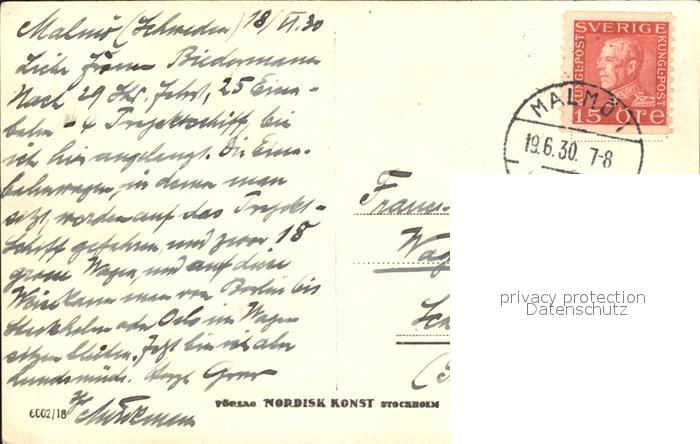 Malmö (Schweden) 18/VI.30
Liebe Frau Biedermann
Nach 29 Std. Fahrt, 25 Eisen-
bahn - 4 Trajektschiff, bin
ich hier angelangt. Die Eisen-
bahnwagen, in denen man
sitzt, werden auf das Trajekt-
schiff gefahren, und zwar 18
grosse Wagen, und auf diese
Weise kann man von Berlin bis
Stockholm oder Oslo im Wagen
sitzen bleiben. Jetzt bin ich aber
hundsmüde. Herzl.
Ihr
SVERIGE
KUNGL-POST
KUNGL-POST
15 ÖRE
MALMÖ 1
19.6.30. 7-8
Wag
privacy protection
Datenschutz
FÖRLAG NORDISK KONST STOCKHOLM
6002/18